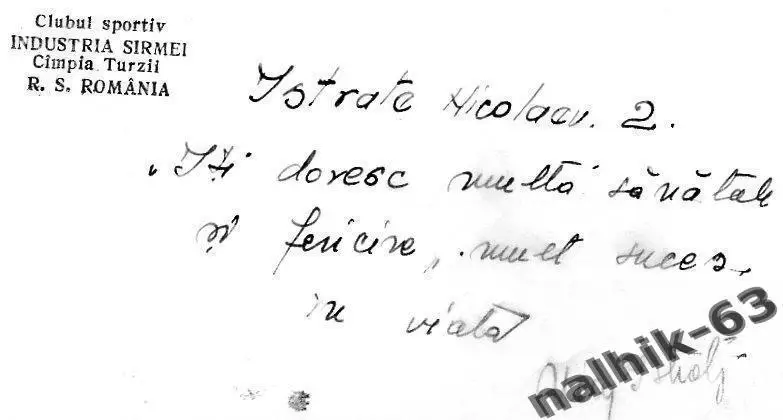 Clubul sportiv
INDUSTRIA SIRMEI
Cîmpia Turzii
R. S. ROMÂNIA
Istrate Nicolaev. 2.
Iți doresc multă sănătate
și fericire, mult succes
in viață
nalhik-63